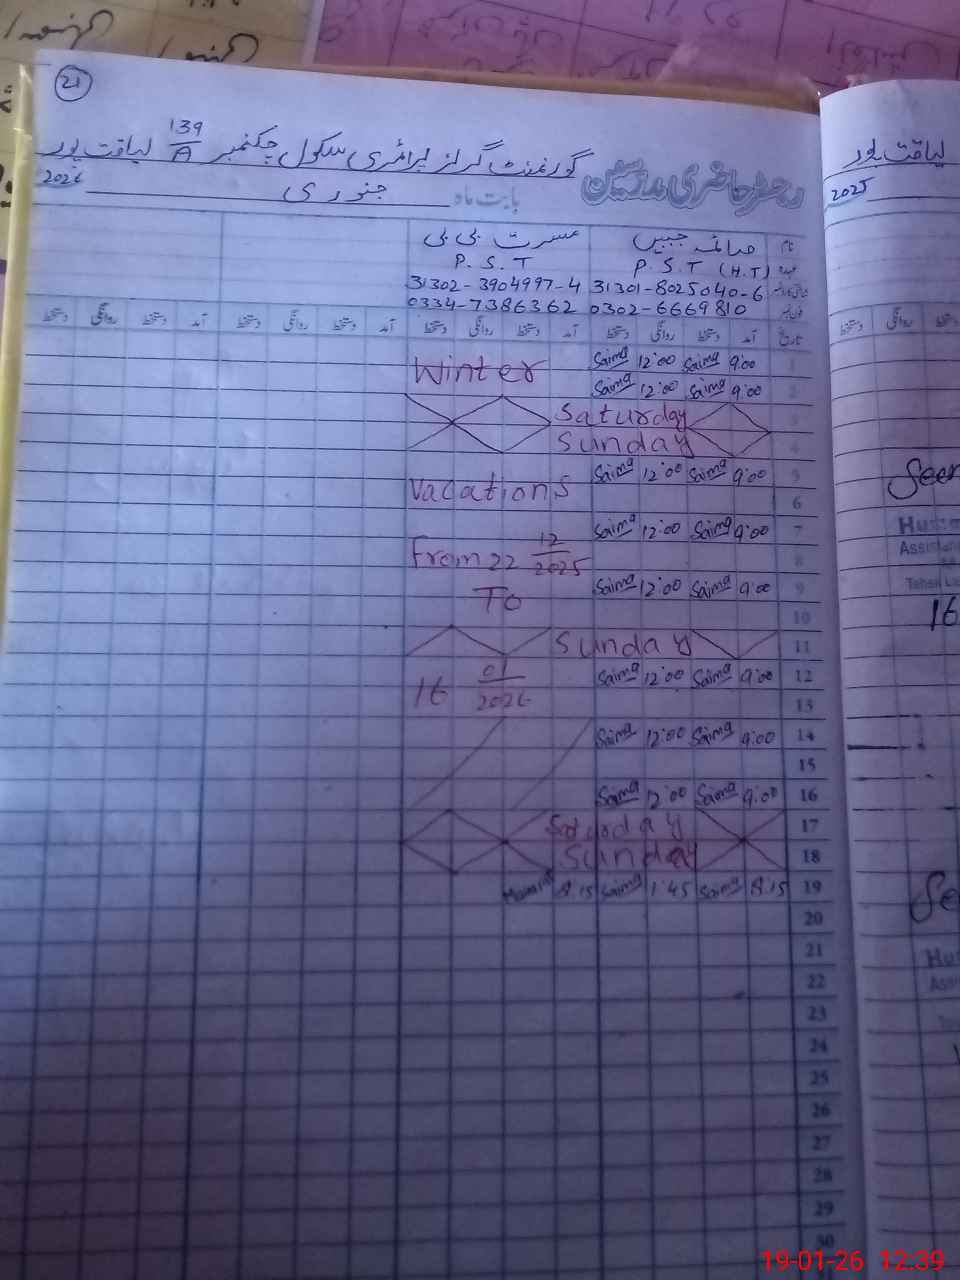 21
گورنمنٹ گرلز پرائمری سکول چکنمبر 139/A لیاقت پور
رجسٹر حاضری مدرسین
بابت ماہ جنوری 2026
نام صائمہ جبیں مسرت بی بی
عہدہ P.S.T (H.T) P.S.T
31301-8025040-6 31302-3904997-4
0302-6669810 0334-7386362
تاریخ آمد دستخط روانگی دستخط آمد دستخط روانگی دستخط آمد دستخط روانگی دستخط آمد دستخط روانگی دستخط
1 9:00 Saima 12:00 Saima
Winter
2 9:00 Saima 12:00 Saima
3 Saturday
4 Sunday
5 9:00 Saima 12:00 Saima
Vacations
6
7 9:00 Saima 12:00 Saima
From 22 12/2025
8
9 9:00 Saima 12:00 Saima
To
10
11 Sunday
12 9:00 Saima 12:00 Saima
16 01/2026
13
14 9:00 Saima 12:00 Saima
15
16 9:00 Saima 12:00 Saima
17 Saturday
18 Sunday
19 8:15 Saima 1:45 Saima 8:15
20
21
22
23
24
25
26
27
28
29
30
لیاقت پور
2025
روانگی دستخط
16
19-01-26 12:39